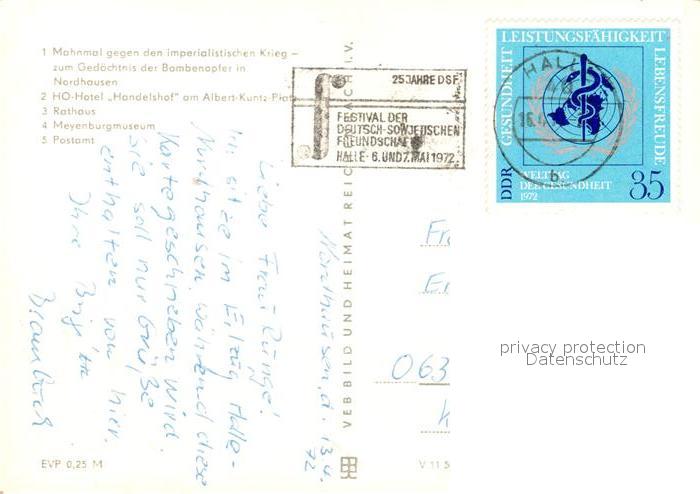 1 Mahnmal gegen den imperialistischen Krieg –
zum Gedächtnis der Bombenopfer in
Nordhausen
2 HO-Hotel „Handelshof" am Albert-Kuntz-Platz
3 Rathaus
4 Meyenburgmuseum
5 Postamt
25 JAHRE DSF
FESTIVAL DER
DEUTSCH-SOWJETISCHEN
FREUNDSCHAFT
HALLE · 6. UND 7. MAI 1972
HALLE
GESUNDHEIT LEISTUNGSFÄHIGKEIT LEBENSFREUDE
DDR
WELTTAG
DER GESUNDHEIT
1972
35
Nordhausen, d. 13.4.
72
Liebe Frau
sitze im Eilzug Halle-
Nordhausen, während diese
Karte geschrieben wird.
Sie soll nur Grüße
enthalten von hier.
Ihre
VEB BILD UND HEIMAT REICHENBACH I. V.
Fr
063
privacy protection
Datenschutz
EVP 0,25 M
V 11 5